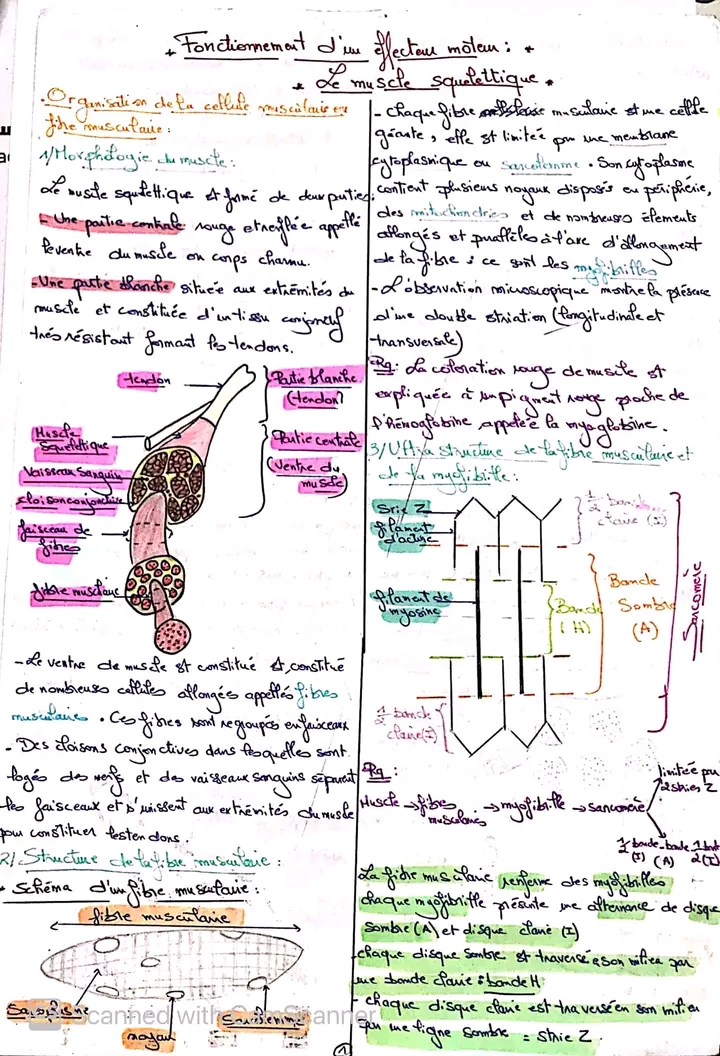 Fonctionnement d'un effecteur môteur :
Le muscle squelettique
Organisation de la cellule musculaire ou
fibre musculaire :
1/ Morphologie du muscle :
Le muscle squelettique est formé de deux parties :
- Une partie centrale rouge et renflée appellé
le ventre du muscle ou corps charnu.
- Une partie blanche située aux extrémités du
muscle et constituée d'un tissu conjonctif
très résistant formant les tendons.
tendon
Partie blanche
(tendon)
Muscle
Squelettique
Partie centrale
(ventre du
muscle)
Vaisseau sanguin
cloison conjonctive
faisceau de
fibres
fibre musculaire
- Le ventre de muscle est constitué est constitué
de nombreuses cellules allongées appellés fibres
musculaires. Ces fibres sont regroupés en faisceaux
- Des cloisons conjonctives dans lesquelles sont
logés des nerfs et des vaisseaux sanguins séparent
les faisceaux et s'unissent aux extrémités du muscle
pour constituer les tendons.
2/ Structure de la fibre musculaire :
Schéma d'un fibre musculaire :
fibre musculaire
noyau
Sarcolemme
Scanned with CamScanner
1
- Chaque fibre musculaire est une cellule
géante, elle est limitée par une membrane
cytoplasmique ou sarcolemme. Son cytoplasme
contient plusieurs noyaux disposés en périphérie,
des mitochondries et de nombreuses élements
allongés et parallèles à l'axe d'allongement
de la fibre : ce sont les myofibrilles
- L'observation microscopique montre la présence
d'une double striation (longitudinale et
transversale)
Rq : La coloration rouge de muscle est
expliquée à un pigment rouge proche de
l'hémoglobine appelée la myoglobine.
3/ Ultra structure de la fibre musculaire et
de la myofibrille :
Strie Z
filament
d'actine
1/2 bande
claire (I)
filament de
myosine
Bande
(H)
Bande
Sombre
(A)
Sarcomère
1/2 bande
claire (I)
Rq :
limitée par
2 stries Z
Muscle → fibres musculaires → myofibrille → sarcomère
1/2 bande (I) - bande (A) 1/2 bande (I)
La fibre musculaire renferme des myofibrilles
chaque myofibrille présente une alternance de disque
sombre (A) et disque claire (I)
- chaque disque sombre est traversé à son milieu par
une bande claire : bande H
- chaque disque claire est traversé en son milieu
par une ligne sombre = strie Z.